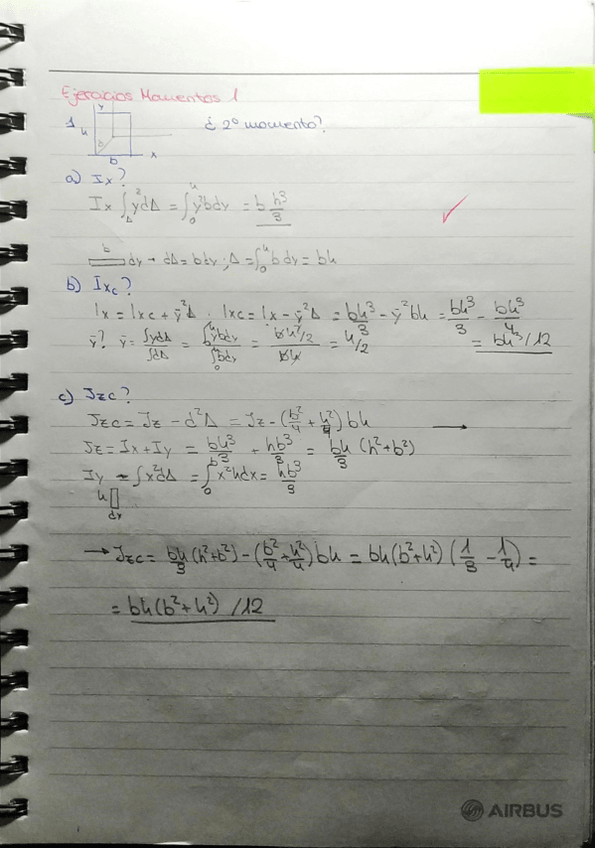 Ejercicios Momentos 1
1 y h b x ¿ 2º momento?
a) Ix?
Ix ∫_A y²dA = ∫₀ʰ y²bdy = b h³/3
b dy → dA = bdy ; A = ∫₀ʰ b dy = bh
b) Ixc?
Ix = Ixc + ȳ²A · Ixc = Ix - ȳ²A = bh³/3 - ȳ²bh = bh³/3 - bh³/4
ȳ? ȳ = ∫ydA/∫dA = ∫₀ʰ ybdy/∫₀ʰ bdy = bh²/2/bh = h/2 = bh³/12
c) Jzc?
Jzc = Jz - d²A = Jz - (b²/4 + h²/4) bh →
Jz = Ix + Iy = bh³/3 + hb³/3 = bh/3 (h²+b²)
Iy = ∫x²dA = ∫₀ᵇ x²hdx = hb³/3
h dx
→ Jzc = bh/3 (h²+b²) - (b²/4 + h²/4) bh = bh(b²+h²) (1/3 - 1/4) =
= bh(b²+h²) /12
AIRBUS